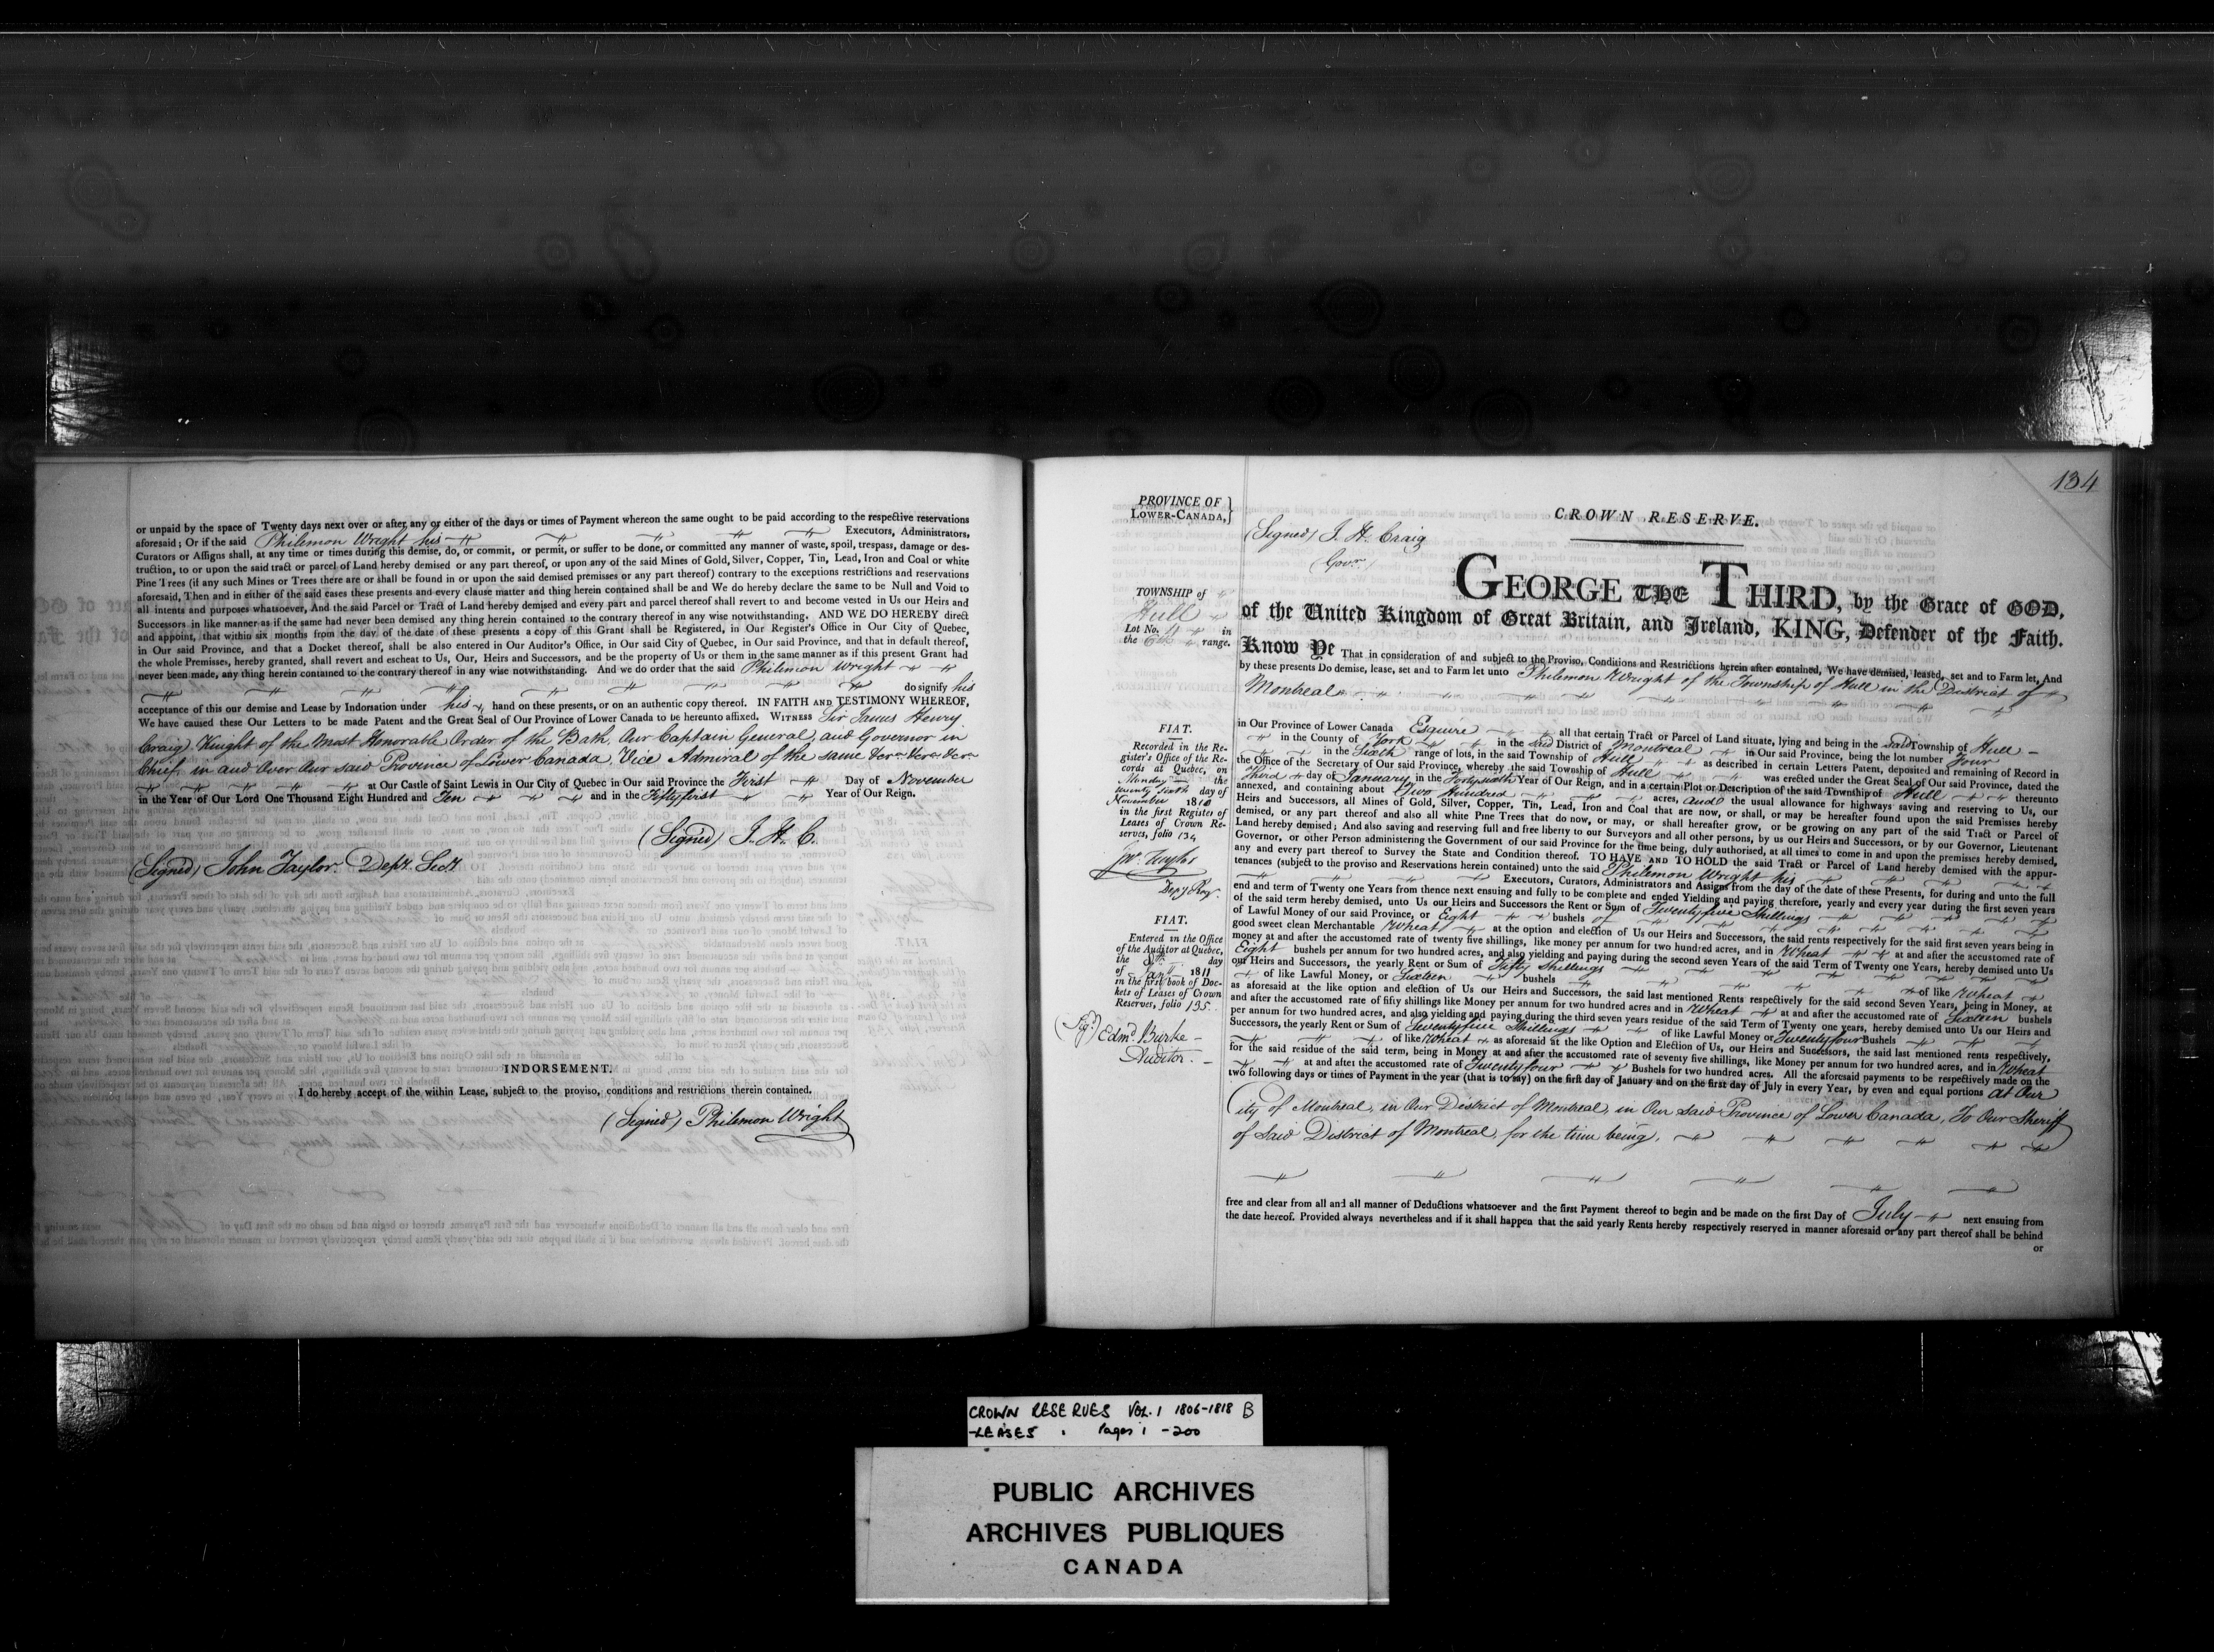 or unpaid by the space of Twenty days next over or after any or either of the days or times of Payment whereon the same ought to be paid according to the respective reservations
aforesaid; Or if the said Philemon Wright his Executors, Administrators,
Curators or Assigns shall, at any time or times during this demise, do, or commit, or permit, or suffer to be done, or committed any manner of waste, spoil, trespass, damage or des-
truction, to or upon the said tract or parcel of Land hereby demised or any part thereof, or upon any of the said Mines of Gold, Silver, Copper, Tin, Lead, Iron and Coal or white
Pine Trees (if any such Mines or Trees there are or shall be found in or upon the said demised premises or any part thereof) contrary to the exceptions restrictions and reservations
aforesaid, Then and in either of the said cases these presents and every clause matter and thing herein contained shall be and We do hereby declare the same to be Null and Void to
all intents and purposes whatsoever, And the said Parcel or Tract of Land hereby demised and every part and parcel thereof shall revert to and become vested in Us our Heirs and
Successors in like manner as if the same had never been demised any thing herein contained to the contrary thereof in any wise notwithstanding. AND WE DO HEREBY direct
and appoint, that within six months from the day of the date of these presents a copy of this Grant shall be Registered, in Our Register's Office in Our City of Quebec,
in Our said Province, and that a Docket thereof, shall be also entered in Our Auditor's Office, in Our said City of Quebec, in Our said Province, and that in default thereof,
the whole Premisses, hereby granted, shall revert and escheat to Us, Our, Heirs and Successors, and be the property of Us or them in the same manner as if this present Grant had
never been made, any thing herein contained to the contrary thereof in any wise notwithstanding. And we do order that the said Philemon Wright
do signify his
acceptance of this our demise and Lease by Indorsation under his hand on these presents, or on an authentic copy thereof. IN FAITH AND TESTIMONY WHEREOF,
We have caused these Our Letters to be made Patent and the Great Seal of Our Province of Lower Canada to be hereunto affixed. WITNESS Sir James Henry
Craig Knight of the Most Honorable Order of the Bath, Our Captain General and Governor in
Chief in and over Our said Province of Lower Canada, Vice Admiral of the same
at Our Castle of Saint Lewis in Our City of Quebec in Our said Province the First Day of November
in the Year of Our Lord One Thousand Eight Hundred and Ten and in the Fiftyfirst Year of Our Reign.
(Signed) J. H. C.
(Signed) John Taylor Depy. Secy.
INDORSEMENT.
I do hereby accept of the within Lease, subject to the proviso, conditions and restrictions therein contained.
(Signed) Philemon Wright
134
PROVINCE OF
LOWER-CANADA,
CROWN RESERVE.
(Signed) J. H. Craig
Govr.
TOWNSHIP of
Hull
Lot No. 4 in
the 6th range.
GEORGE THE THIRD, by the Grace of GOD,
of the United Kingdom of Great Britain, and Ireland, KING, Defender of the Faith.
Know Ye That in consideration of and subject to the Proviso, Conditions and Restrictions herein after contained, We have demised, leased, set and to Farm let, And
by these presents Do demise, lease, set and to Farm let unto Philemon Wright of the Township of Hull in the District of
Montreal
in Our Province of Lower Canada Esquire all that certain Tract or Parcel of Land situate, lying and being in the said Township of Hull
in the County of York in the said District of Montreal in Our said Province, being the lot number Four
in the Sixth range of lots, in the said Township of Hull as described in certain Letters Patent, deposited and remaining of Record in
the Office of the Secretary of Our said Province, whereby the said Township of Hull was erected under the Great Seal of Our said Province, dated the
Third day of January in the Fortysixth Year of Our Reign, and in a certain Plot or Description of the said Township of Hull thereunto
annexed, and containing about Two Hundred acres, and the usual allowance for highways saving and reserving to Us, our
Heirs and Successors, all Mines of Gold, Silver, Copper, Tin, Lead, Iron and Coal that are now, or shall, or may be hereafter found upon the said Premises hereby
demised, or any part thereof and also all white Pine Trees that do now, or may, or shall hereafter grow, or be growing on any part of the said Tract or Parcel of
Land hereby demised; And also saving and reserving full and free liberty to our Surveyors and all other persons, by us our Heirs and Successors, or by our Governor, Lieutenant
Governor, or other Person administering the Government of our said Province for the time being, duly authorised, at all times to come in and upon the premises hereby demised,
any and every part thereof to Survey the State and Condition thereof. TO HAVE AND TO HOLD the said Tract or Parcel of Land hereby demised with the appur-
tenances (subject to the proviso and Reservations herein contained) unto the said Philemon Wright his
Executors, Curators, Administrators and Assigns from the day of the date of these Presents, for during and unto the full
end and term of Twenty one Years from thence next ensuing and fully to be complete and ended Yielding and paying therefore, yearly and every year during the first seven years
of the said term hereby demised, unto Us our Heirs and Successors the Rent or Sum of Twentyfive Shillings
of Lawful Money of our said Province, or Eight bushels of
good sweet clean Merchantable Wheat at the option and election of Us our Heirs and Successors, the said rents respectively for the said first seven years being in
money at and after the accustomed rate of twenty five shillings, like money per annum for two hundred acres, and in Wheat at and after the accustomed rate of
Eight bushels per annum for two hundred acres, and also yielding and paying during the second seven Years of the said Term of Twenty one Years, hereby demised unto Us
our Heirs and Successors, the yearly Rent or Sum of Fifty Shillings
of like Lawful Money, or Sixteen bushels of like Wheat
as aforesaid at the like option and election of Us our Heirs and Successors, the said last mentioned Rents respectively for the said second Seven Years, being in Money, at
and after the accustomed rate of fifty shillings like Money per annum for two hundred acres and in Wheat at and after the accustomed rate of Sixteen bushels
per annum for two hundred acres, and also yielding and paying during the third seven years residue of the said Term of Twenty one years, hereby demised unto Us our Heirs and
Successors, the yearly Rent or Sum of Seventyfive Shillings of like Lawful Money or Twentyfour Bushels
of like Wheat as aforesaid at the like Option and Election of Us, our Heirs and Successors, the said last mentioned rents respectively,
for the said residue of the said term, being in Money at and after the accustomed rate of seventy five shillings, like Money per annum for two hundred acres, and in Wheat
at and after the accustomed rate of Twentyfour Bushels for two hundred acres. All the aforesaid payments to be respectively made on the
two following days or times of Payment in the year (that is to say) on the first day of January and on the first day of July in every Year, by even and equal portions at Our
City of Montreal, in Our District of Montreal, in Our said Province of Lower Canada, To Our Sheriff
of said District of Montreal, for the time being.
free and clear from all and all manner of Deductions whatsoever and the first Payment thereof to begin and be made on the first Day of July next ensuing from
the date hereof. Provided always nevertheless and if it shall happen that the said yearly Rents hereby respectively reserved in manner aforesaid or any part thereof shall be behind
or
FIAT.
Recorded in the Re-
gister's Office of the Re-
cords at Quebec, on
Monday the
twenty sixth day of
November 1810
in the first Register of
Leases of Crown Re-
serves, folio 134
Jno. Taylor
Depy Regr.
FIAT.
Entered in the Office
of the Auditor at Quebec,
the 8th day
of Jany 1811
in the first book of Doc-
kets of Leases of Crown
Reserves, folio 135.
(Sigd.) Edmd. Burke
Auditor
CROWN RESERVES VOL. 1 1806-1818 B
-LEASES . Pages 1 - 200
PUBLIC ARCHIVES
ARCHIVES PUBLIQUES
CANADA